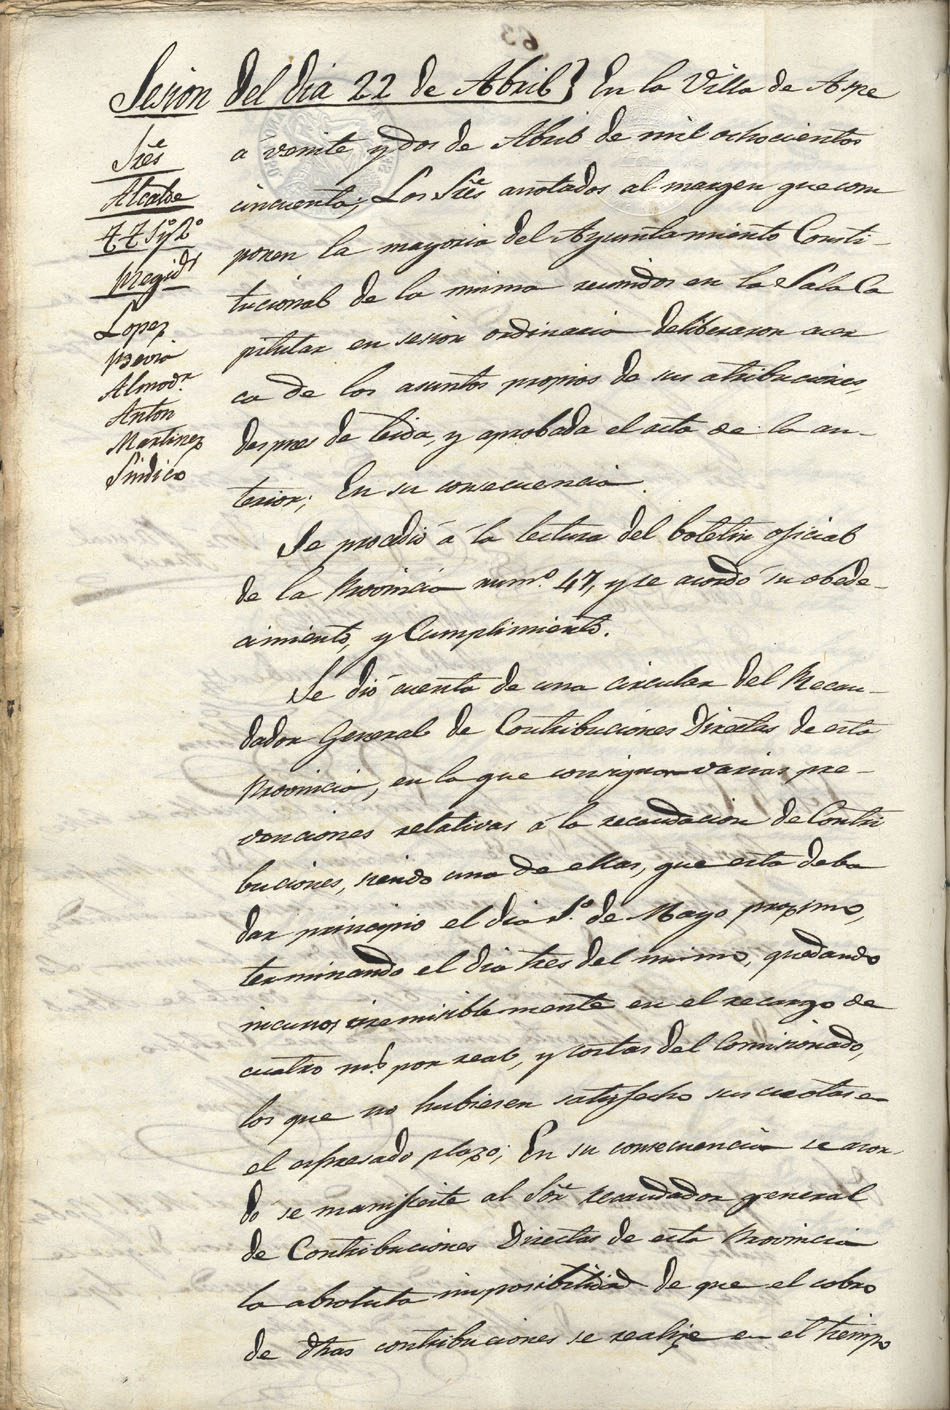 Sesion del dia 22 de Abril} En la Villa de Aspe
a veinte y dos de Abril de mil ochocientos
cincuenta; Los Sres anotados al margen que com
ponen la mayoria del Ayuntamiento Consti-
tucional de la misma reunidos en la Sala Ca
pitular en sesion ordinaria deliberaron acer
ca de los asuntos propios de sus atribuciones,
despues de leida, y aprobada el acta de la an-
terior; En su consecuencia
Sres
Alcalde
TT 1º y 2º
Regids
Lopez
Almodr
Anton
Martinez
Sindico
Se procedió á la lectura del boletin oficial
de la Provincia numº 47, y se acordó su obede-
cimiento, y Cumplimiento.
Se dió cuenta de una circular del Recau-
dador General de Contribuciones Directas de esta
Provincia, en la que consignan varias pre-
venciones relativas á la recaudacion de Contri
buciones, siendo una de ellas, que esta deba
dar principio el dia 1º de Mayo proximo,
terminando el dia tres del mismo, quedando
incursos irremisiblemente en el recargo de
cuatro ms por real, y costas del Comisionado,
los que no hubiesen satisfecho sus cuotas en
el espresado plazo; En su consecuencia se acor-
dó se manifieste al Sor recaudador general
de Contribuciones Directas de esta Provincia
la absoluta imposibilidad de que el cobro
de dhas contribuciones se realize en el tiempo